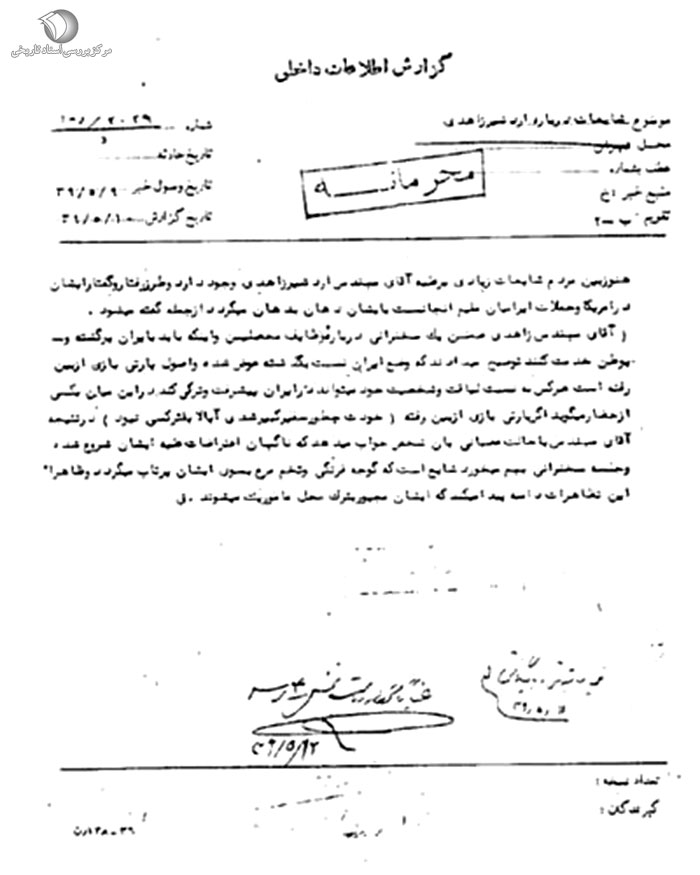 مرکز بررسی اسناد تاریخی
گزارش اطلاعات داخلی
موضوع شایعات درباره اردشیر زاهدی
شماره
محل تهران
تاریخ حادثه
عطف بشماره
محرمانه
تاریخ وصول خبر ۳۹/۵/۹
منبع خبر
تاریخ گزارش ۳۹/۵/۱۰
تقویم ب-۲
هنوز بین مردم شایعات زیادی برعلیه آقای مهندس اردشیر زاهدی وجود دارد و طرز رفتار و گفتار ایشان
در امریکا و حملات ایرانیان مقیم انجا نسبت بایشان دهان بدهان میگردد ازجمله گفته میشود .
( آقای مهندس زاهدی ضمن یک سخنرانی درباره وظایف محصلین و اینکه باید بایران برگشته و-
بوطن خدمت کنند توضیح میدادند که وضع ایران نسبت بگذشته عوض شده و اصول پارتی بازی ازبین
رفته است هرکس به نسبت لیاقت و شخصیت خود میتواند در ایران پیشرفت و ترقی کند در این میان یکی
از حضار میگوید اگر پارتی بازی ازبین رفته ( خودت چطور سفیرکبیر شدی آیا لایقتر کسی نبود ) درنتیجه
آقای مهندس با حالت عصبانی بان شخص جواب میدهد که ناگهان اعتراضات علیه ایشان شروع شده
و جلسه سخنرانی بهم میخورد شایع است که گوجه فرنگی و تخم مرغ بسوی ایشان پرتاب میگردد و ظاهرا"
این تظاهرات دامنه پیدا میکند که ایشان مجبور بترک محل ماموریت میشوند .
۳۹/۵/۱۲
تعداد نسخه :
گیرندگان :